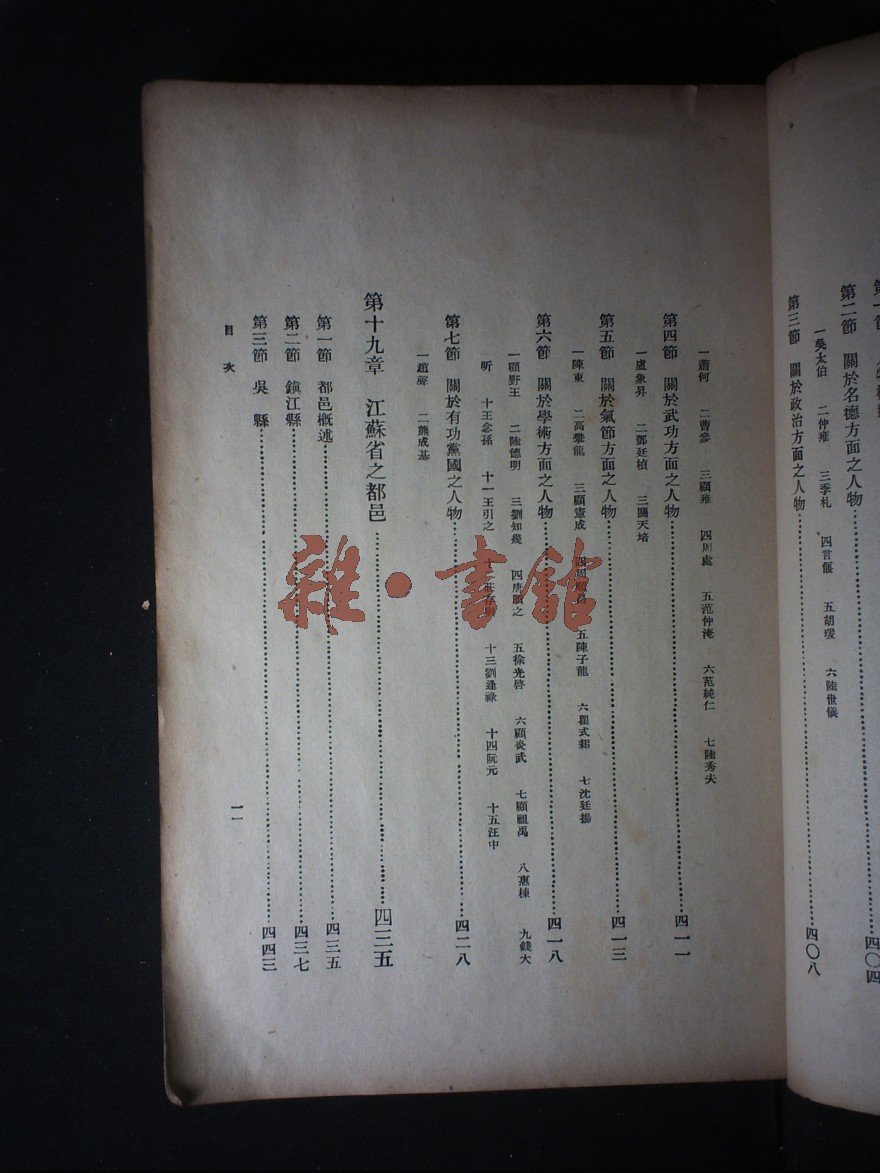 第二節　關於名德方面之人物……四〇四
一吳太伯　二仲雍　三季札　四言偃　五胡瑗　六陸世儀
第三節　關於政治方面之人物……四〇八
一蕭何　二曹參　三顧雍　四周處　五范仲淹　六范純仁　七陸秀夫
第四節　關於武功方面之人物……四一一
一盧象昇　二鄧廷楨　三閻天培
第五節　關於氣節方面之人物……四一三
一陳東　二高攀龍　三顧憲成　四周順昌　五陳子龍　六瞿式耜　七沈廷揚
第六節　關於學術方面之人物……四一八
一顧野王　二陸德明　三劉知幾　四唐順之　五徐光啓　六顧炎武　七顧祖禹　八惠棟　九錢大
昕　十王念孫　十一王引之　十二　十三劉逢祿　十四阮元　十五汪中
第七節　關於有功黨國之人物……四二八
一趙聲　二熊成基
第十九章　江蘇省之都邑……四三五
第一節　都邑概述……四三五
第二節　鎭江縣……四三七
第三節　吳縣……四四三
目次
一一
雜·書館